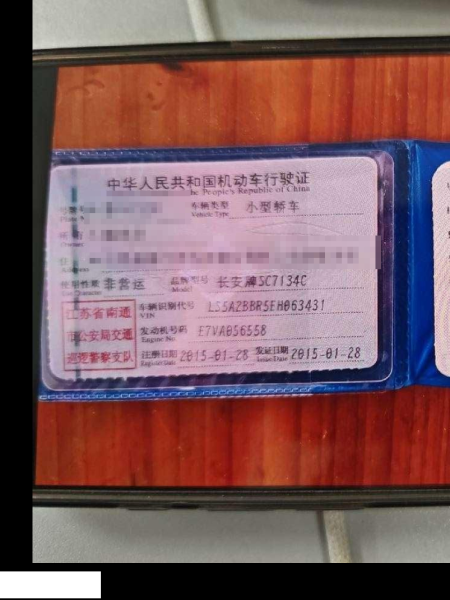 中华人民共和国机动车行驶证
he People's Republic of China
车辆类型 小型轿车
Vehicle Type
使用性质 非营运 品牌型号 长安牌SC7134C
Use Character Model
车辆识别代号 LS5A2BBR5EH063431
VIN
发动机号码 E7VA056558
Engine No
注册日期 2015-01-28 发证日期 2015-01-28
Register Date Issue Date
江苏省南通
市公安局交通
巡逻警察支队